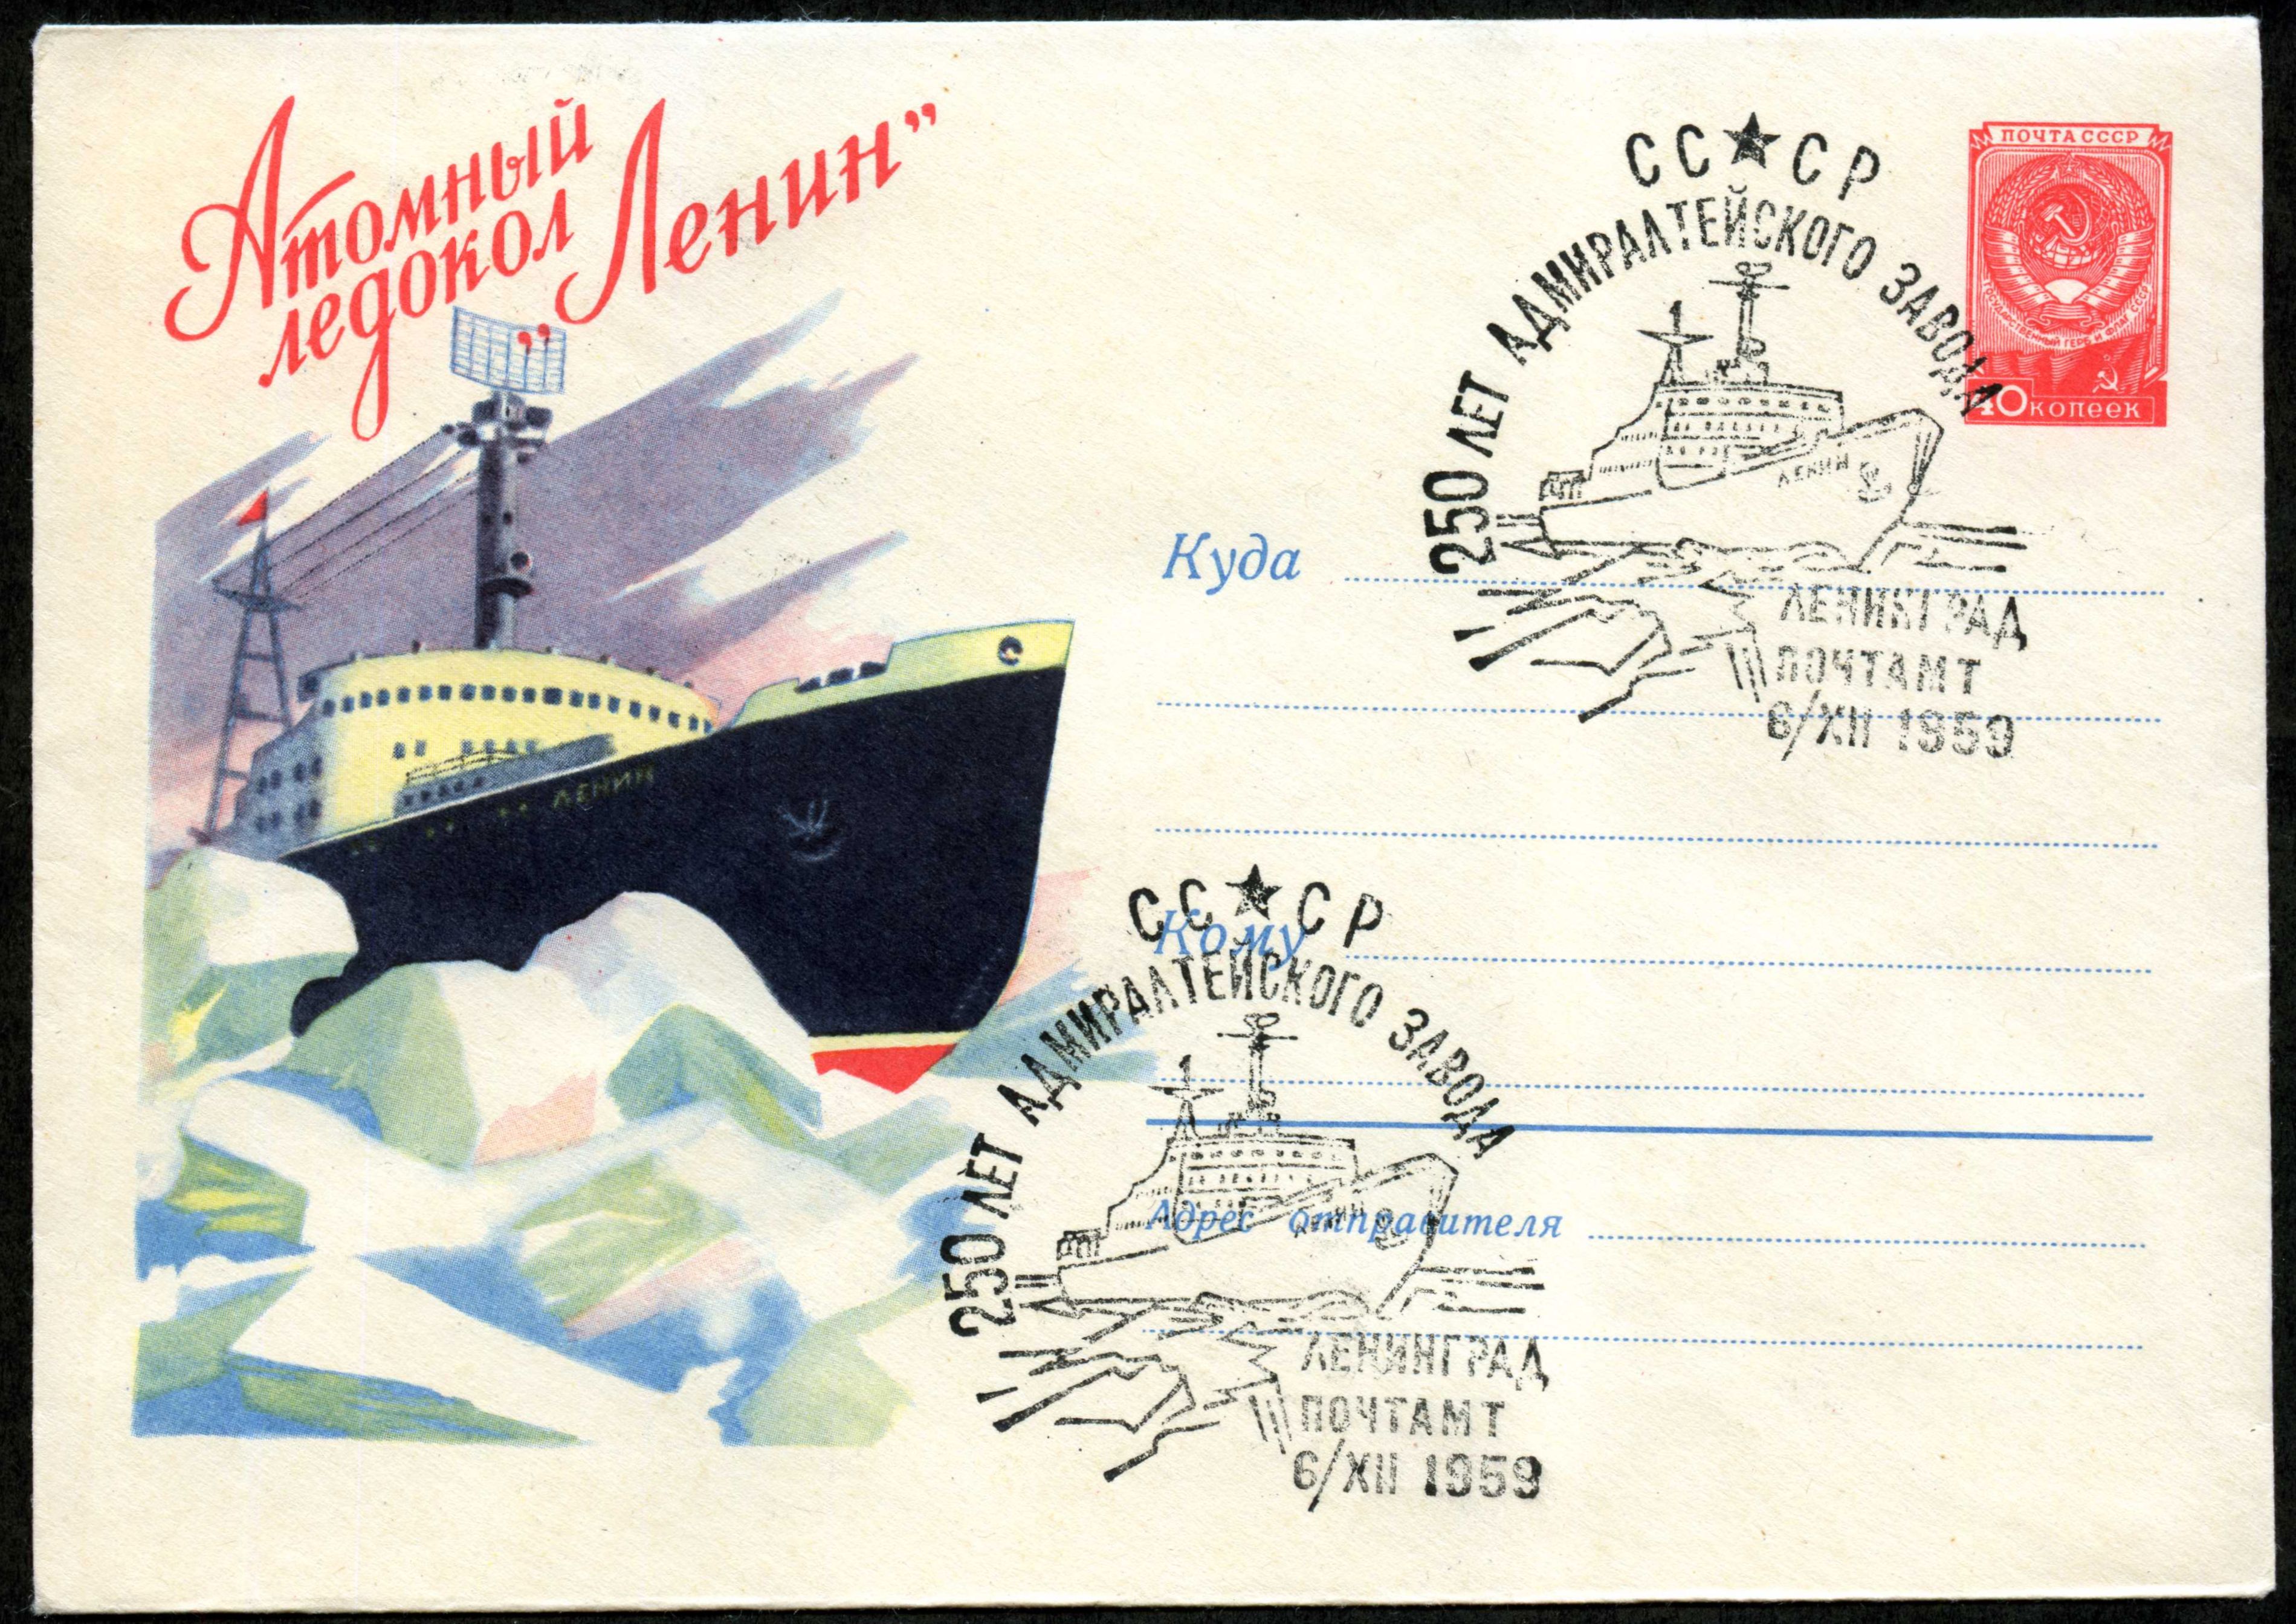 Атомный
ледокол „Ленин”
ЛЕНИН
ПОЧТА СССР
ГОСУДАРСТВЕННЫЙ ГЕРБ И ФЛАГ СССР
40 копеек
СС★СР
250 ЛЕТ АДМИРАЛТЕЙСКОГО ЗАВОДА
ЛЕНИН
ЛЕНИНГРАД
ПОЧТАМТ
6/XII 1959
Куда
Кому
СС★СР
250 ЛЕТ АДМИРАЛТЕЙСКОГО ЗАВОДА
ЛЕНИН
Адрес отправителя
ЛЕНИНГРАД
ПОЧТАМТ
6/XII 1959